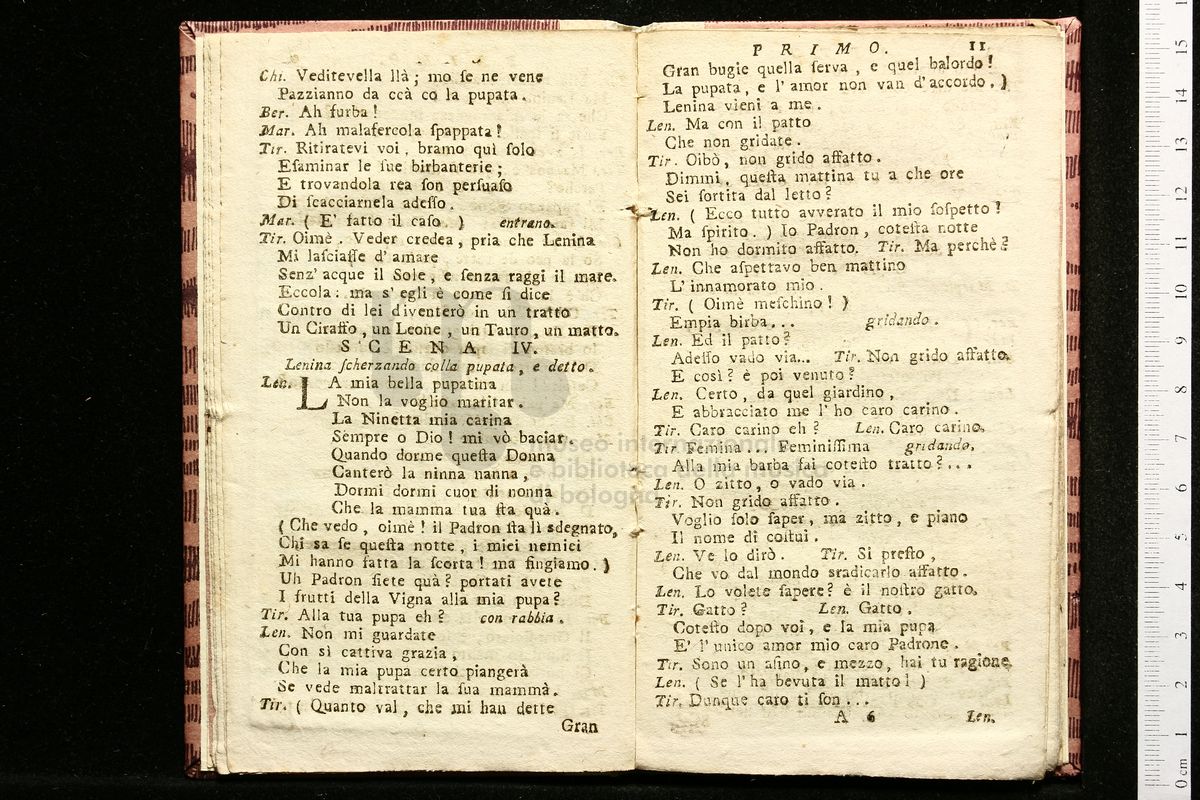 Chi. Veditevella llà; mo ſe ne vene
Pazzianno da ccà co la pupata.
Ber. Ah furba!
Mar. Ah malafercola ſpappata!
Tir. Ritiratevi voi, bramo quì ſolo
Eſaminar le ſue birbanterie;
E trovandola rea ſon perſuaſo
Di ſcacciarnela adeſſo.
Mar. ( E' fatto il caſo. ) entrano.
Tir. Oimè. Veder credea, pria che Lenina
Mi laſciaſſe d'amare
Senz' acque il Sole, e ſenza raggi il mare.
Eccola: ma s' egli è come ſi dice
Contro di lei diventerò in un tratto
Un Ciraffo, un Leone, un Tauro, un matto.
SCENA IV.
Lenina ſcherzando colla pupata, e detto.
Len. LA mia bella pupatina
Non la voglio maritar.
La Ninetta mia carina
Sempre o Dio! mi vò baciar.
Quando dorme queſta Donna
Canterò la ninna nanna,
Dormi dormi cuor di nonna
Che la mamma tua ſta quà.
( Che vedo, oimè! il Padron ſta lì sdegnato,
Chi sa ſe queſta notte, i miei nemici
Mi hanno fatta la ſcorta! ma fingiamo. )
Uh Padron ſiete quà? portati avete
I frutti della Vigna alla mia pupa?
Tir. Alla tua pupa eh? con rabbia.
Len. Non mi guardate
Con sì cattiva grazia,
Che la mia pupa certo piangerà
Se vede maltrattar la ſua mammà.
Tir. ( Quanto val, che mi han dette
Gran
PRIMO. 11
Gran bugie quella ſerva, e quel balordo!
La pupata, e l'amor non van d'accordo. )
Lenina vieni a me.
Len. Ma con il patto
Che non gridate.
Tir. Oibò, non grido affatto.
Dimmi, queſta mattina tu a che ore
Sei ſortita dal letto?
Len. ( Ecco tutto avverato il mio ſoſpetto!
Ma ſpirito. ) Io Padron, coteſta notte
Non ho dormito affatto. Tir. Ma perchè?
Len. Che aſpettavo ben mattino
L'innamorato mio.
Tir. ( Oimè meſchino! )
Empia birba... gridando.
Len. Ed il patto?
Adeſſo vado via... Tir. Non grido affatto.
E così? è poi venuto?
Len. Certo, da quel giardino,
E abbracciato me l'ho caro carino.
Tir. Caro carino eh? Len. Caro carino.
Tir Femina... Feminiſſima gridando.
Alla mia barba fai coteſto tratto?...
Len. O zitto, o vado via.
Tir. Non grido affatto.
Voglio ſolo ſaper, ma zitto, e piano
Il nome di coſtui.
Len. Ve lo dirò. Tir. Sì preſto,
Che vo dal mondo sradicarlo affatto.
Len. Lo volete ſapere? è il noſtro gatto.
Tir. Gatto? Len. Gatto.
Coteſto dopo voi, e la mia pupa
E' l'unico amor mio caro Padrone.
Tir. Sono un aſino, e mezzo, hai tu ragione.
Len. ( Se l'ha bevuta il matto! )
Tir. Dunque caro ti ſon...
A 6 Len.
museo internazionale
e biblioteca della musica
bologna